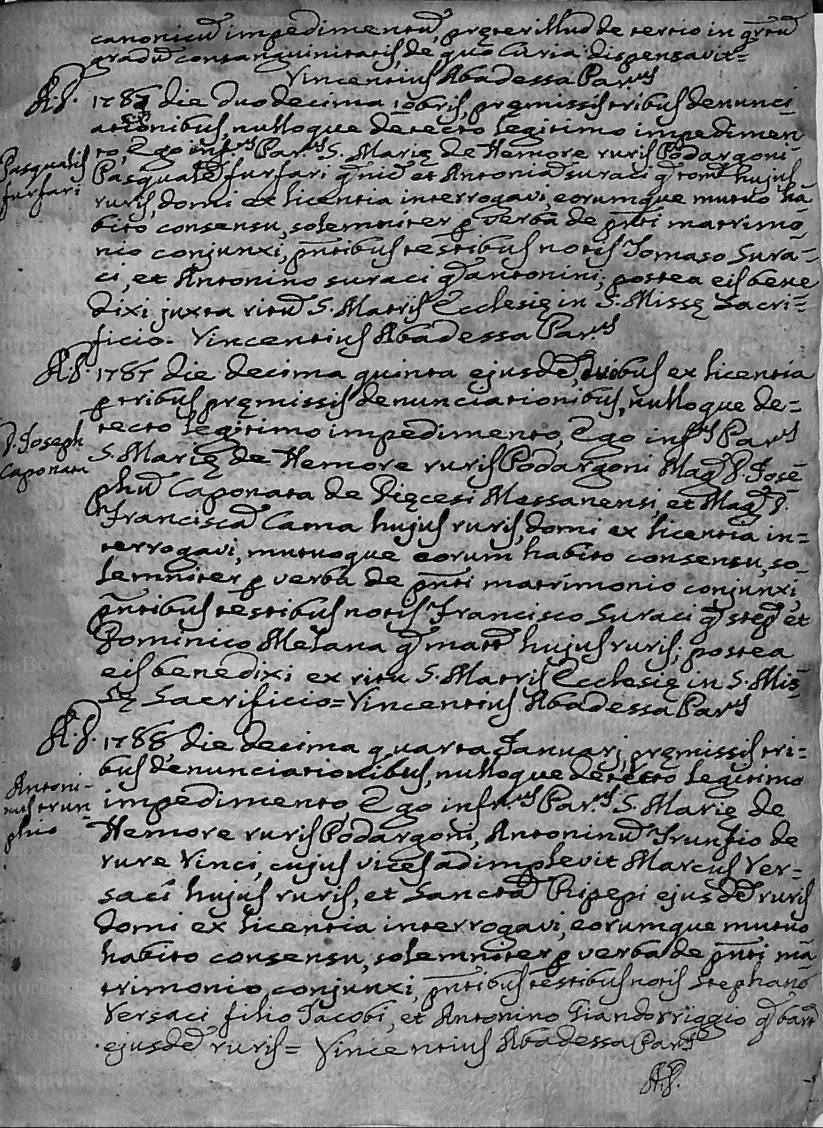 canonicũ impedimentũ, pręter illud de tertio in qrtũ
gradũ consanguinitatis, de quo Curia dispensavit=
Vincentius Abadessa Parus
A.D. 1787 die duodecima 10bris, pręmissis tribus denunci
ationibus, nulloque detecto legitimo impedimen
to, Ego infrus Parus S. Marię de Nemore ruris Podargoni
Pasqualis
furfari
Pasqualẽ furfari qm̃ et Antoniã suraci qm̃ hujus
ruris, domi ex licentia interrogavi, eorumque mutuo ha
bito consensu, solemniter p verba de pñti matrimo
nio conjunxi, pñtibus testibus notis Tomaso Sura=
ci, et Antonino suraci qm̃ antonini; postea eis bene
dixi juxta ritũ S. Matris Ecclesię in S. Missę Sacri=
ficio. Vincentius Abadessa Parus
A.D. 1787 die decima quinta ejusdẽ, duibus ex licentia
p tribus pręmissis denunciationibus, nulloque de=
D. Joseph
Caponata
tecto legitimo impedimento, Ego infrus Parus
S. Marię de Nemore ruris Podargoni Magm D. Josę
phũ Caponata de Dięcesi Messanensi, et Magm D.
Franciscã Cama hujus ruris, domi ex licentia in=
terrogavi, mutuoque eorum habito consensu, so
lemniter p verba de pñti matrimonio conjunxi,
pñtibus testibus notis Francisco Suraci qm̃ step et
Dominico Melana qm̃ matt hujus ruris; postea
eis benedixi ex ritu S. Matris Ecclesię in S. Mis
sę Sacrificio= Vincentius Abadessa Parus
A.D. 1788, die decima quarta Januarj, pręmissis tri=
bus denunciationibus, nulloque detecto legitimo
Antoni-
nus trun
phio
impedimento, Ego infrus Parus S. Marię de
Nemore ruris Podargoni, Antoninũ Trunfio de
rure Vinci, cujus vices adimplevit Marcus Ver=
saci hujus ruris, et Sanctã Pripepi ejusdẽ ruris
domi ex licentia interrogavi, eorumque mutuo
habito consensu, solemniter p verba de pñti ma
trimonio conjunxi, pñtibus testibus notis Stephano
Versaci filio Jacobi, et Antonino Giandorriggio qm̃ bart
ejusdẽ ruris= Vincentius Abadessa Parus
A.D.